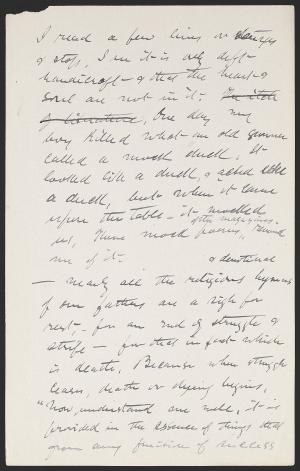 I read a few lines or stanzas
& stop, I see it is only deft
handicraft - & that the heart &
soul are not in it.
of literature, One day my
boy killed what an old gunner
called a mock duck. It
looked like a duck, & acted like
a duck, but when it came
upon the table - it mocked
of the magazines.
us, These mock poems, remind
me of it.
& devotional
— nearly all the religious hymns
of our fathers are a sigh for
rest - for an end of struggle &
strife - for that in fact which
is death, Because when struggle
ceases, death or dying begins.
"Now understand me well, it is
provided in the essence of things that
from any fruition of success